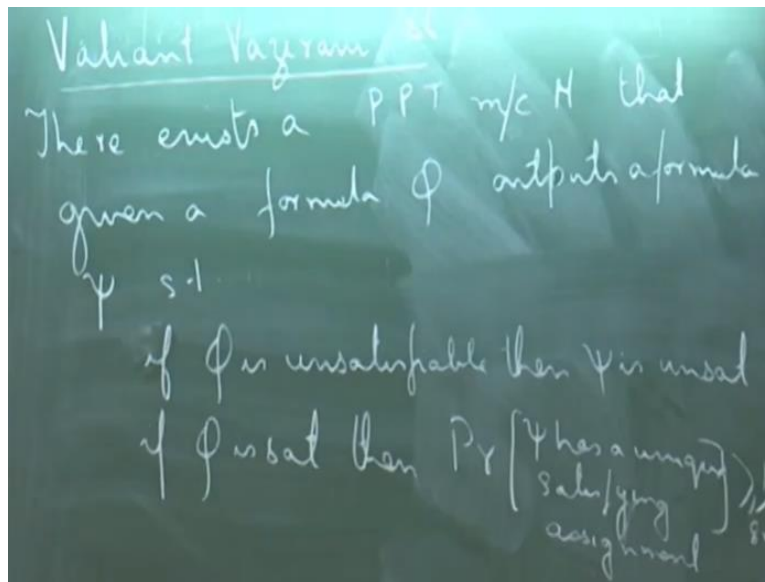 Valiant Vazirani
There exists a PPT m/c M that
given a formula φ outputs a formula
ψ s.t.
if φ is unsatisfiable then ψ is unsat
if φ is sat then Pr [ψ has a unique
satisfying
assignment] ≥